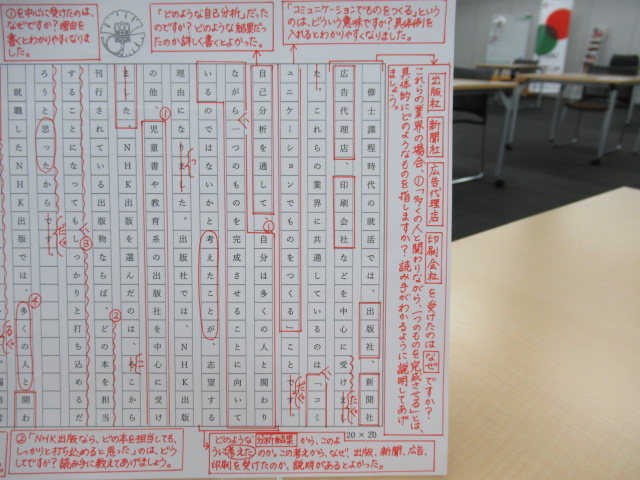 出版社 新聞社 広告代理店 印刷会社 を受けたのはなぜですか？
これらの業界の場合、①「多くの人と関わりながら、一つのものを完成させる」とは、
具体的にどのようなものを指しますか？読み手がわかるように説明してあげ
ましょう。
「コミュニケーションでものをつくる」という
のは、どういう意味ですか？具体例を
入れるとわかりやすくなりました。
「どのような自己分析」だった
のですか？どのような結果だっ
たのか詳しく書くとよかった。
①を中心に受けたのは、
なぜですか？理由を
書くとわかりやすくなり
ました。
修士課程時代の就活では、出版社、新聞社、
広告代理店、印刷会社などを中心に受けまし
た。これらの業界に共通しているのは「コミ
ュニケーションでものをつくる」ことです。
自己分析を通して、自分は多くの人と関わり
ながら一つのものを完成させることに向いて
いるのではないかと考えたことが、志望する
理由になりました。出版社では、NHK出版
の他、児童書や教育系の出版社を中心に受け
ました。NHK出版を選んだのは、ここから
刊行されている出版物ならば、どの本を担当
することになってもしっかりと打ち込めるだ
ろうと思ったからです。
就職したNHK出版では、多くの人と関わ
20×20
どのような分析結果から、このよ
うに考えたのか。この考えから、なぜ、出版、新聞、広告、
印刷を受けたのか、説明があるとよかった。
②「NHK出版なら、どの本を担当しても、
しっかりと打ち込めると思った」のは、どう
してですか？読み手に教えてあげましょう。